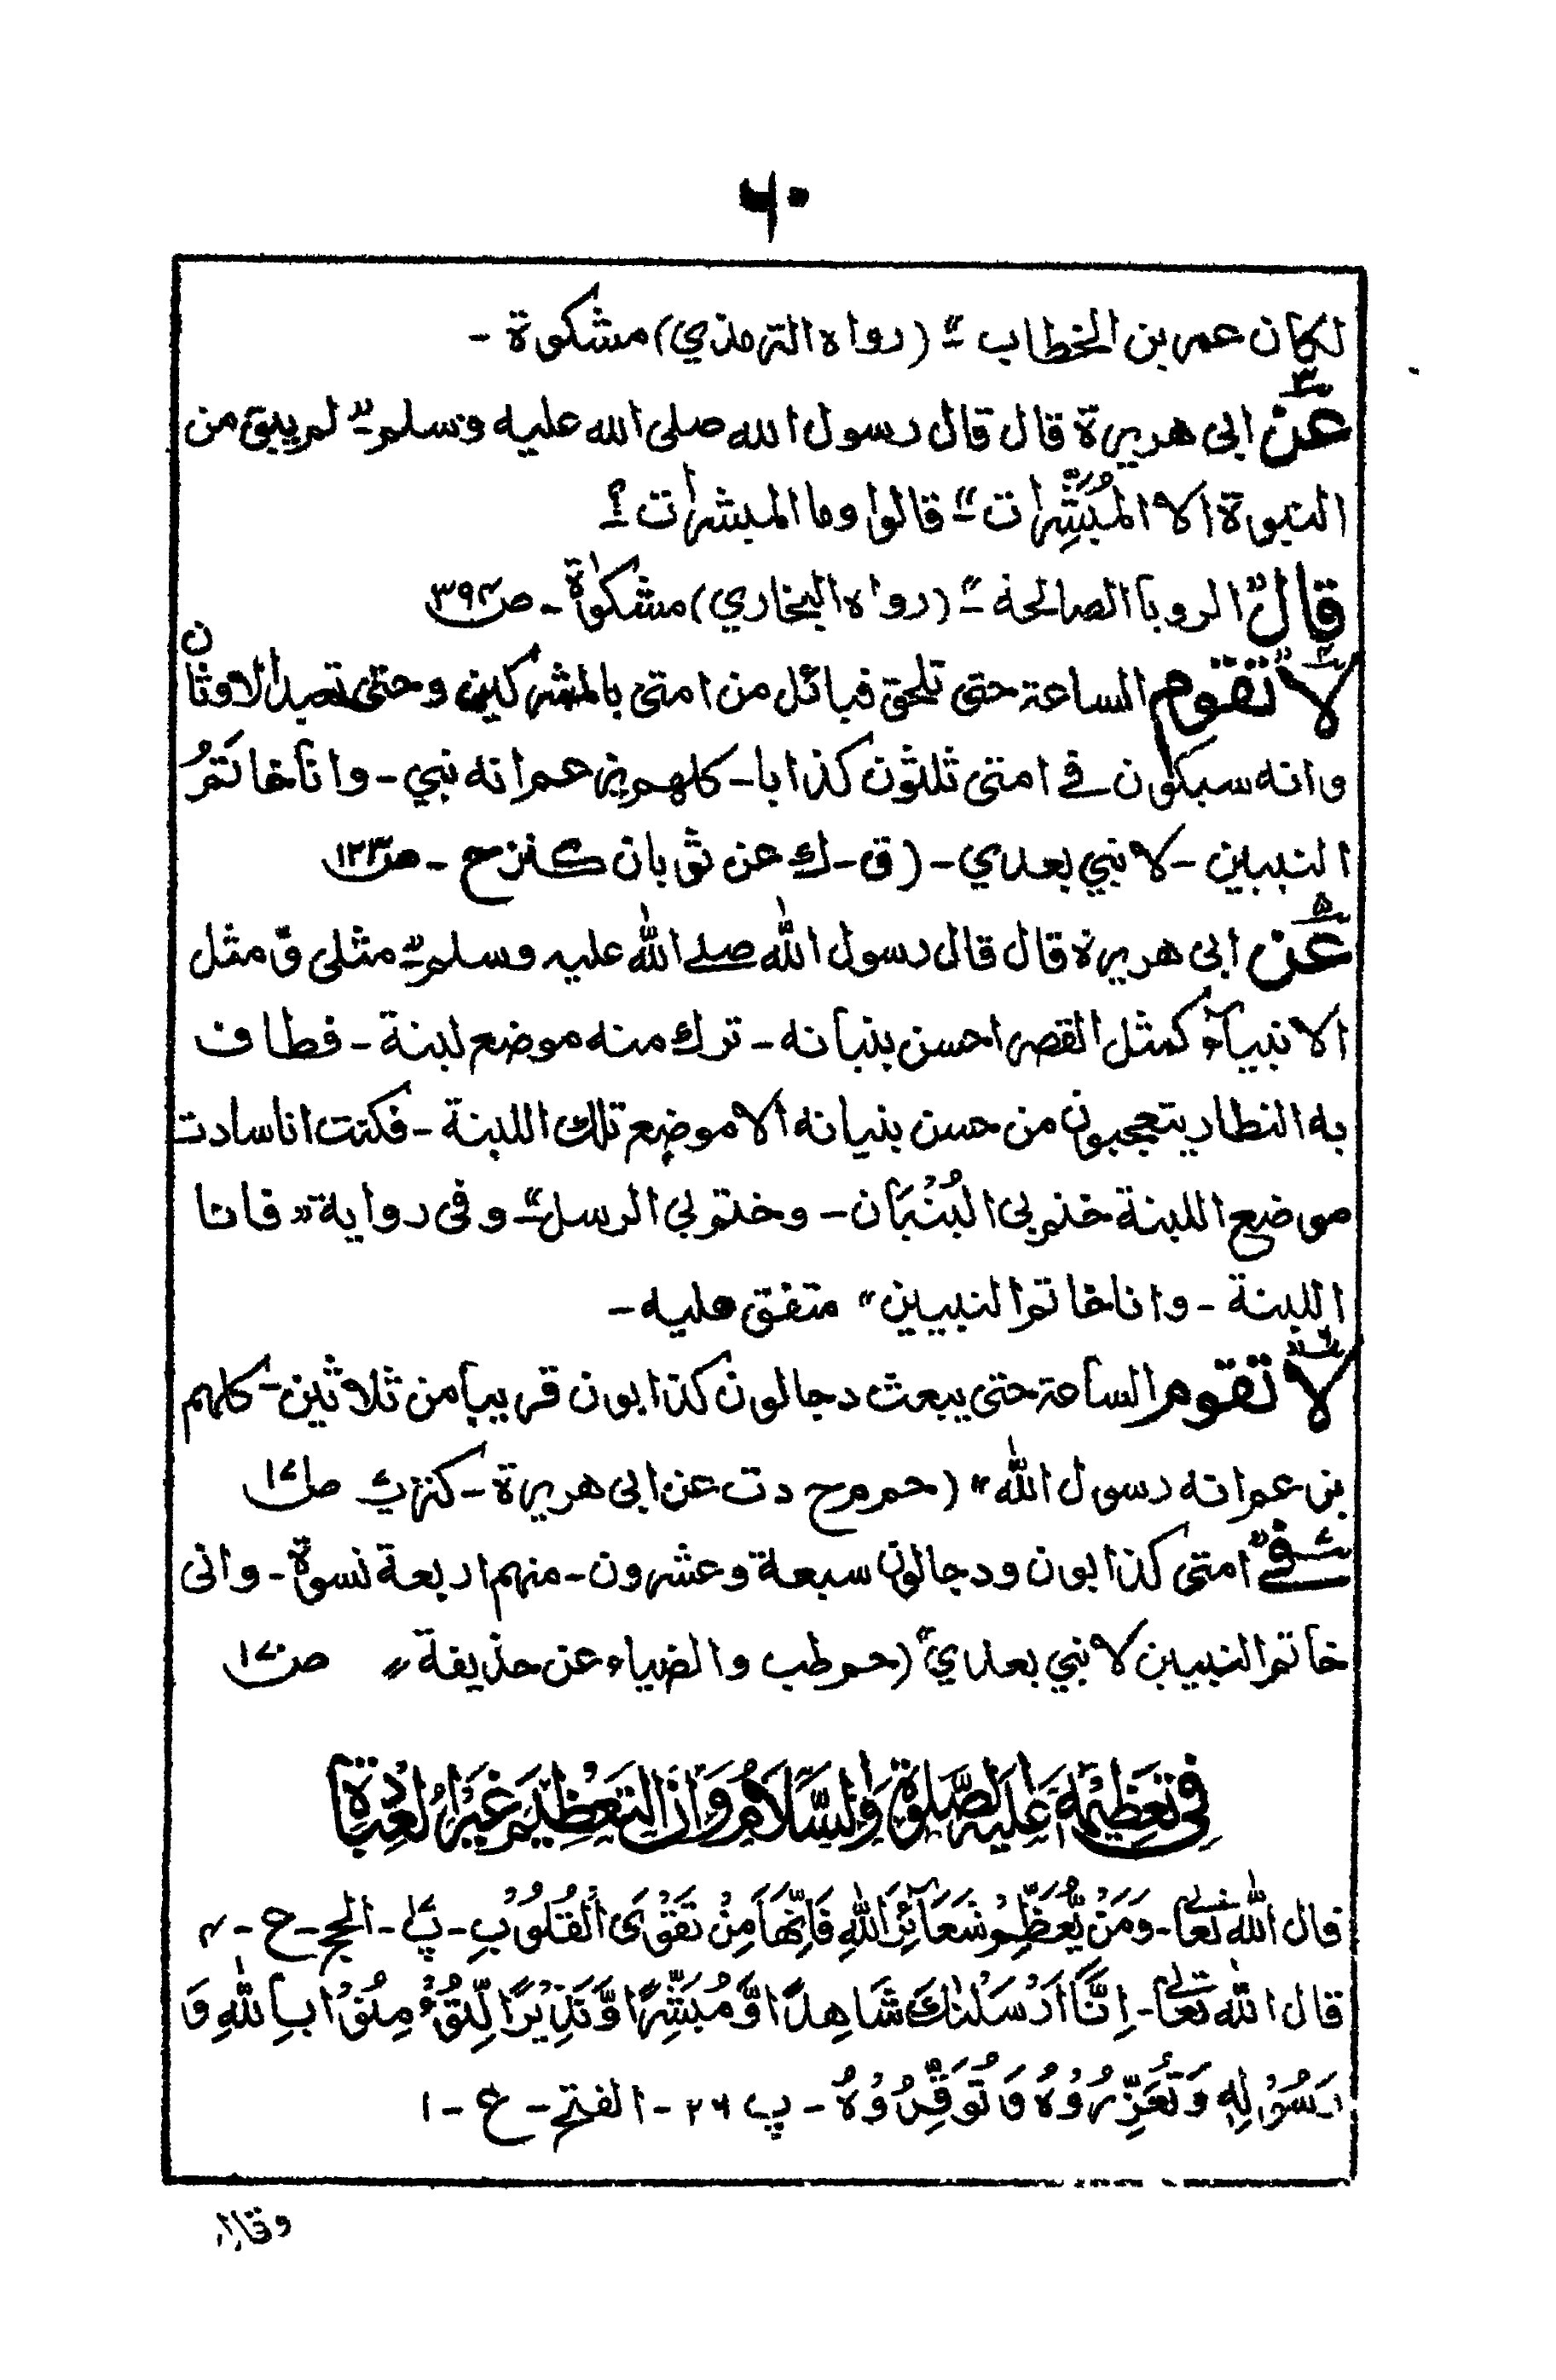 ۶۰
لكان عمر بن الخطاب" (رواه الترمذي) مشكوة -
۳ عن ابى هريرة قال قال رسول الله صلى الله عليه وسلم" لم يبق من
النبوة الا المُبَشِّرات" قالوا وما المبشرات؟
قال" الرويا الصالحة" (رواه البخاري) مشكوٰة - ص۳۹۴
۴ "لا تقوم الساعة حتى تلحق قبائل من امتى بالمشركين وحتى تعبد الاوثان
وانه سيكون في امتى ثلثون كذابا - كلهم يزعم انه نبي - وانا خاتَمُ
النبيين - لا نبي بعدي - (ق - ك عن ثوبان كنز ح - ص۱۲۳
۵ عن ابى هريرة قال قال رسول الله صلے الله عليه وسلم" مثلى و مثل
الانبيآء كمثل القصر احسن بنيانه - ترك منه موضع لبنة - فطاف
به النظار يتعجبون من حسن بنيانه الا موضع تلك اللبنة - فكنت انا سادت
موضع اللبنة ختم بى البُنْيَان - وختم بي الرسل" - وفى رواية "فانا
اللبنة - وانا خاتم النبيين" متفق عليه -
۶ "لا تقوم الساعة حتى يبعث دجالون كذابون قريبا من ثلاثين - كلهم
يزعم انه رسول الله" (حم م ح د ت عن ابى هريرة - كنز ص۱۷
۷ في" امتى كذابون ودجالون سبعة وعشرون - منهم اربعة نسوة - وانى
خاتم النبيين لا نبي بعدي" (حم طب والضياء عن حذيفة " ص۱۷
فِى تَعْظِيْمِهٖ عَلَيْهِ الصَّلٰوةُ وَالسَّلَامُ وَاَنَّ التَّعْظِيْمَ غَيْرُ الْعِبَادَةِ
قال الله تعالى - وَمَنْ يُّعَظِّمْ شَعَآئِرَ اللهِ فَاِنَّهَا مِنْ تَقْوَى الْقُلُوْبِ - پ۱۷ - الحج - ع - ۴
قال الله تعالى - اِنَّآ اَرْسَلْنٰكَ شَاهِدًا وَّمُبَشِّرًا وَّنَذِيْرًا لِّتُؤْمِنُوْا بِاللهِ وَ
رَسُوْلِهٖ وَتُعَزِّرُوْهُ وَتُوَقِّرُوْهُ - پ ۲۶ - الفتح - ع - ۱